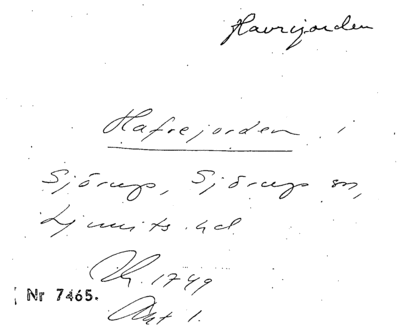 Havrejorden
Hafrejorden i
Sjörup, Sjörup sn,
Ljunits hd
Nr 7465.
1749
Akt 1.